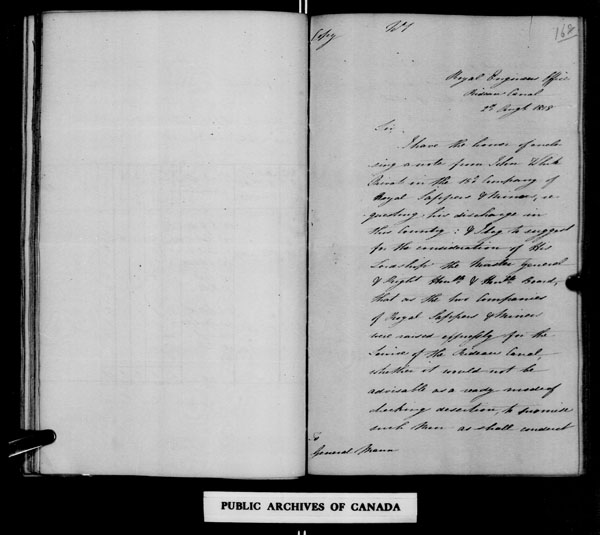 Copy
No 1
168
Royal Engineer Office
Rideau Canal
2d Augt 1828
Sir,
I have the honor of enclo
sing a note from John White
Privat in the 15th Company of
Royal Sappers & Miners, re
questing his discharge in
this Country: & I beg to suggest
for the consideration of His
Lordship the Master General
& Right Honble & Honble Board,
that as the two Companies
of Royal Sappers & Miners
were raised expressly for the
Service of the Rideau Canal,
whether it would not be
advisable as a ready mode of
checking desertion, to promise
such Men as shall conduct
To
General Mann
PUBLIC ARCHIVES OF CANADA